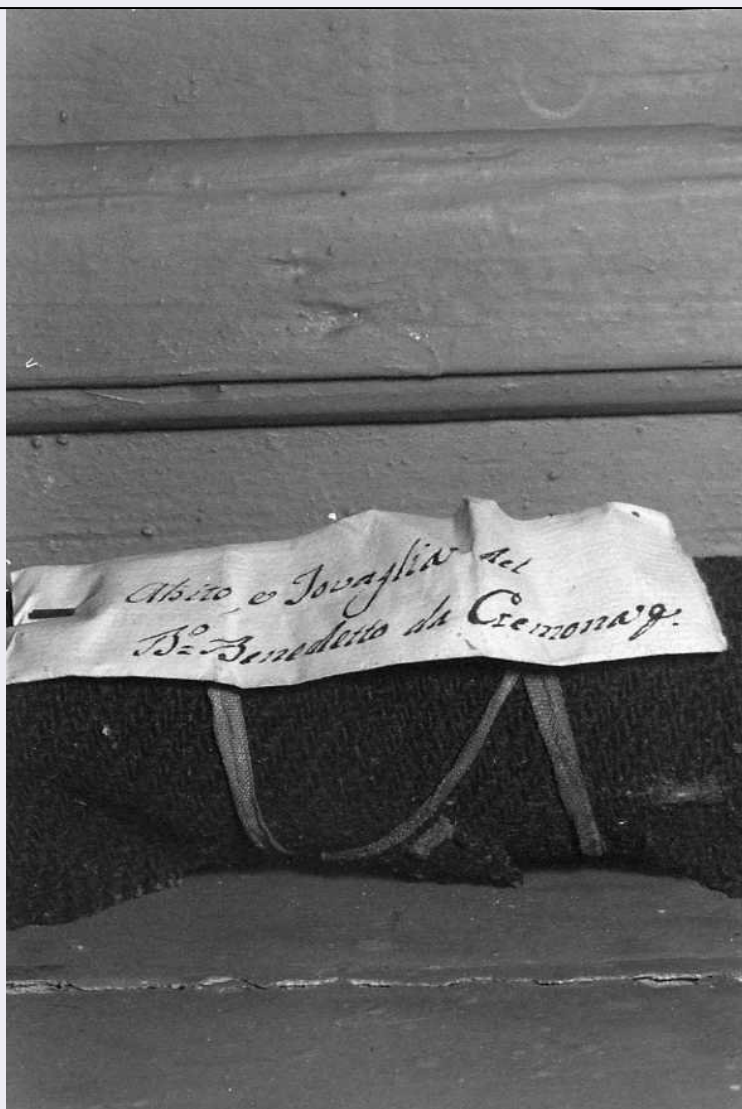 Abito, e Tovaglia del
B:º Benedetto da Cremona